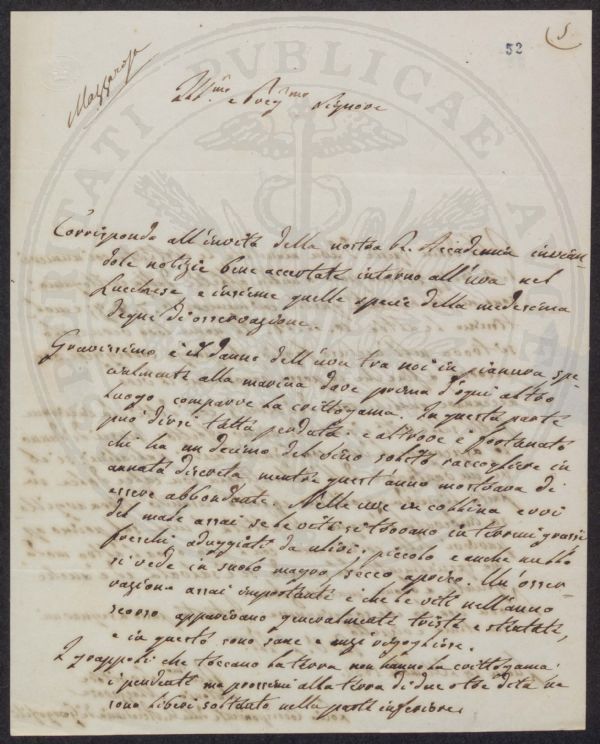 5
52
Mazzarosa
Ill.mo e Preg.mo Signore
Corrispondo all'invito della nostra R. Accademia invian-
dole notizie bene accertate intorno all'uva nel
Lucchese e insieme quelle specie della medesima
degne di osservazione.
Gravissimo è il danno dell'uva tra noi in pianura spe-
cialmente alla marina dove prima d'ogni altro
luogo comparve la crittogama. In questa parte
può dirsi tutta perduta, e altrove è fortunato
chi ha un decimo del vino solito raccogliere in
annata discreta mentre quest'anno mostrava di
essere abbondante. Nelle uve in collina evvi
del male assai se le viti si trovano in terreni grassi
freschi aduggiati da ulivi; piccolo e anche nullo
si vede in suolo magro, secco, aprico. Un osser-
vazione assai importante è che le viti nell'anno
scorso apparivano generalmente triste e stentate,
e in questo sono sane e anzi rigogliose.
I grappoli che toccano la terra non hanno la crittogama:
i pendenti ma prossimi alla terra di due o tre dita ne
sono liberi soltanto nella parte inferiore.
PUBLICAE